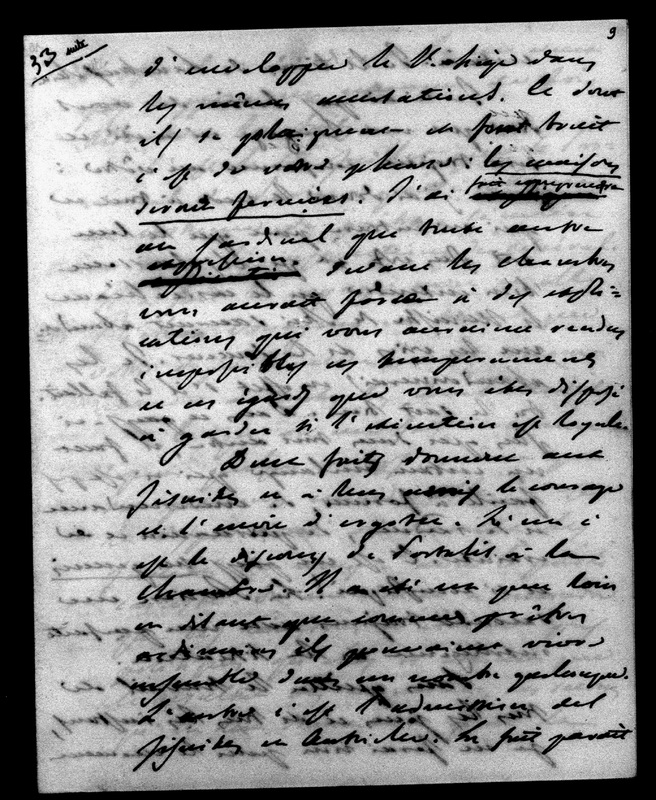 33 suite
9
d'envelopper le St Siège dans
les mêmes accusations. Ce dont
ils se plaignent et font bruit
c'est de votre phrase : les maisons
seront fermées. J'ai fait apprendre
au Cardinal que toute autre
expression devant les chambres
vous aurait forcé à des expli-
cations qui vous auraient rendus
impossibles ces tempéramens
et ces égards que vous êtes disposé
à garder si l'exécution est loyale.
Deux faits donnent aux
Jésuites et à leurs amis le courage
et l'envie d'ergoter. L'un c'
est le discours de Portalis à la
chambre. Il a été un peu loin
en disant que comme prêtres
ordinaires ils pouvaient vivre
ensemble dans un nombre quelconque.
L'autre c'est l'admission des
Jésuites en Autriche. Le fait paraît